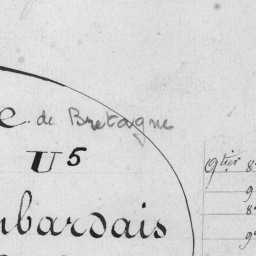 e. de Bretagne
U 5
mbardais
9tier 8
9
8
9